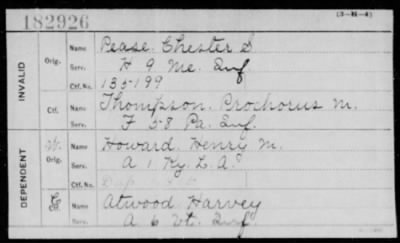 182926
(3-M-4)
INVALID
Orig. Name Pease, Chester S.
Serv. H 9 Me. Inf
Ctf. No. 135-199
Ctf. Name Thompson, Prochorus M.
Serv. F 58 Pa. Inf.
DEPENDENT
Orig. Name Howard, Henry M.
Serv. A 1 Ky. L. A.
Ctf. No.
Name Atwood Harvey
Serv. A 6 Vt. Inf.